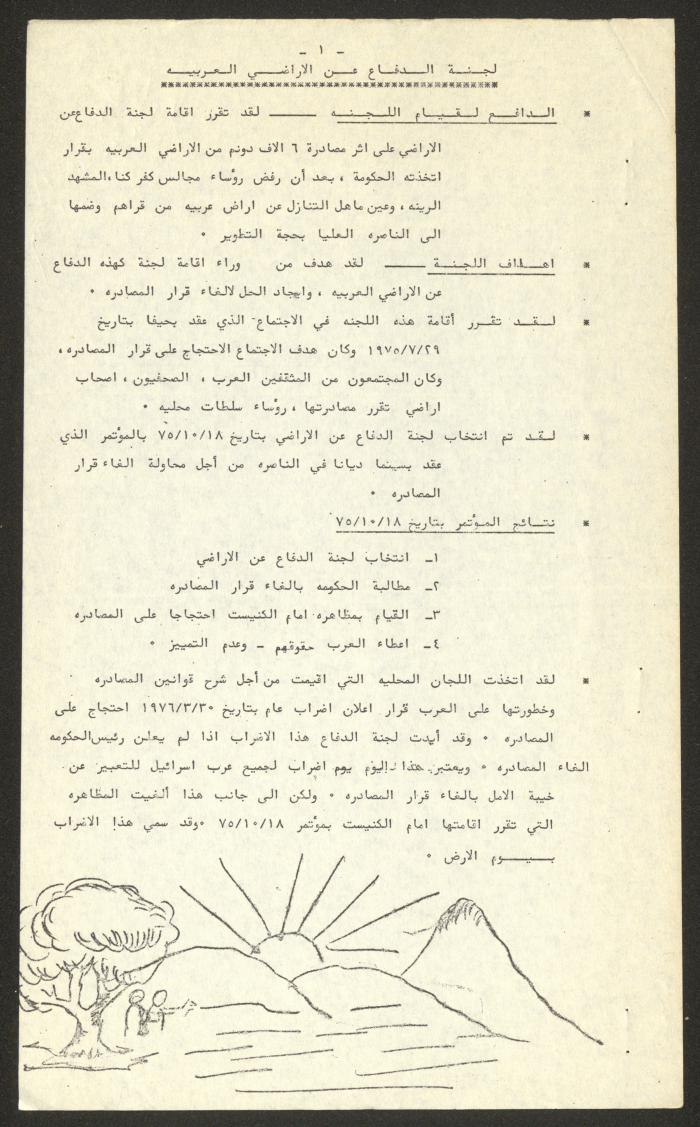 - ١ -
لجنة الدفاع عن الاراضي العربيه
* الدافع لقيام اللجنه ــــ لقد تقرر اقامة لجنة الدفاع عن
الاراضي على اثر مصادرة ٦ الاف دونم من الاراضي العربيه بقرار
اتخذته الحكومة ، بعد أن رفض رؤساء مجالس كفر كنا ، المشهد
الرينه ، وعين ماهل التنازل عن اراض عربيه من قراهم وضمها
الى الناصره العليا بحجة التطوير ٠
* اهداف اللجنة ــــ لقد هدف من وراء اقامة لجنة كهذه الدفاع
عن الاراضي العربيه ، وايجاد الحل لالغاء قرار المصادره ٠
* لقد تقرر أقامة هذه اللجنه في الاجتماع الذي عقد بحيفا بتاريخ
١٩٧٥/٧/٢٩ وكان هدف الاجتماع الاحتجاج على قرار المصادره ،
وكان المجتمعون من المثقفين العرب ، الصحفيون ، اصحاب
اراضي تقرر مصادرتها ، رؤساء سلطات محليه ٠
* لقد تم انتخاب لجنة الدفاع عن الاراضي بتاريخ ٧٥/١٠/١٨ بالمؤتمر الذي
عقد بسينما ديانا في الناصره من أجل محاولة الغاء قرار
المصادره ٠
* نتائج المؤتمر بتاريخ ٧٥/١٠/١٨
١ـ انتخاب لجنة الدفاع عن الاراضي
٢ـ مطالبة الحكومه بالغاء قرار المصادره
٣ـ القيام بمظاهره امام الكنيست احتجاجا على المصادره
٤ـ اعطاء العرب حقوقهم - وعدم التمييز ٠
* لقد اتخذت اللجان المحليه التي اقيمت من أجل شرح قوانين المصادره
وخطورتها على العرب قرار اعلان اضراب عام بتاريخ ١٩٧٦/٣/٣٠ احتجاج على
المصادره ٠ وقد أيدت لجنة الدفاع هذا الاضراب اذا لم يعلن رئيس الحكومه
الغاء المصادره ٠ ويعتبر هذا اليوم يوم اضراب لجميع عرب اسرائيل للتعبير عن
خيبة الامل بالغاء قرار المصادره ٠ ولكن الى جانب هذا ألغيت المظاهره
التي تقرر اقامتها امام الكنيست بمؤتمر ٧٥/١٠/١٨ ٠ وقد سمي هذا الاضراب
بيوم الارض ٠